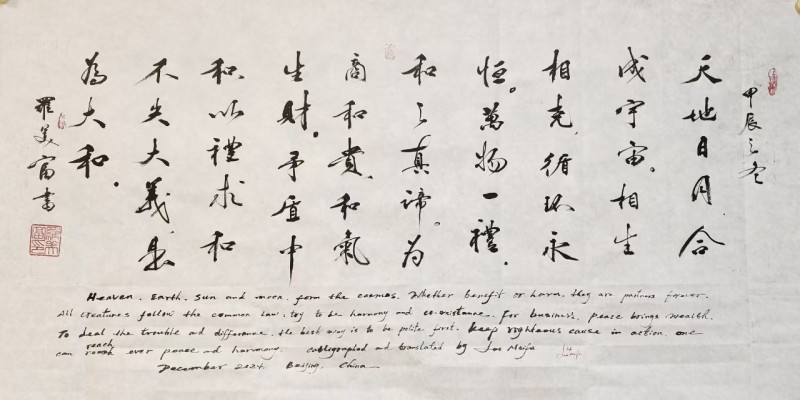 甲辰之冬
天地日月合
成宇宙。相生
相克循环永
恒。萬物一禮
和之真谛。为
商和贵和氣
生财。矛盾中
和以禮求和
不失大義是
為大和。
羅美富書
Heaven. Earth. Sun and moon. form the cosmos. Whether benefit or harm, they are partners forever.
All creatures follow the common law: try to be harmony and co-existance. For business, peace brings wealth.
To deal the trouble and differance, the best way is to be polite first. Keep righteous cause in action. one
can reach ever peace and harmony. calligraphied and translated by Luo Meifu
December 2024. Beijing, China